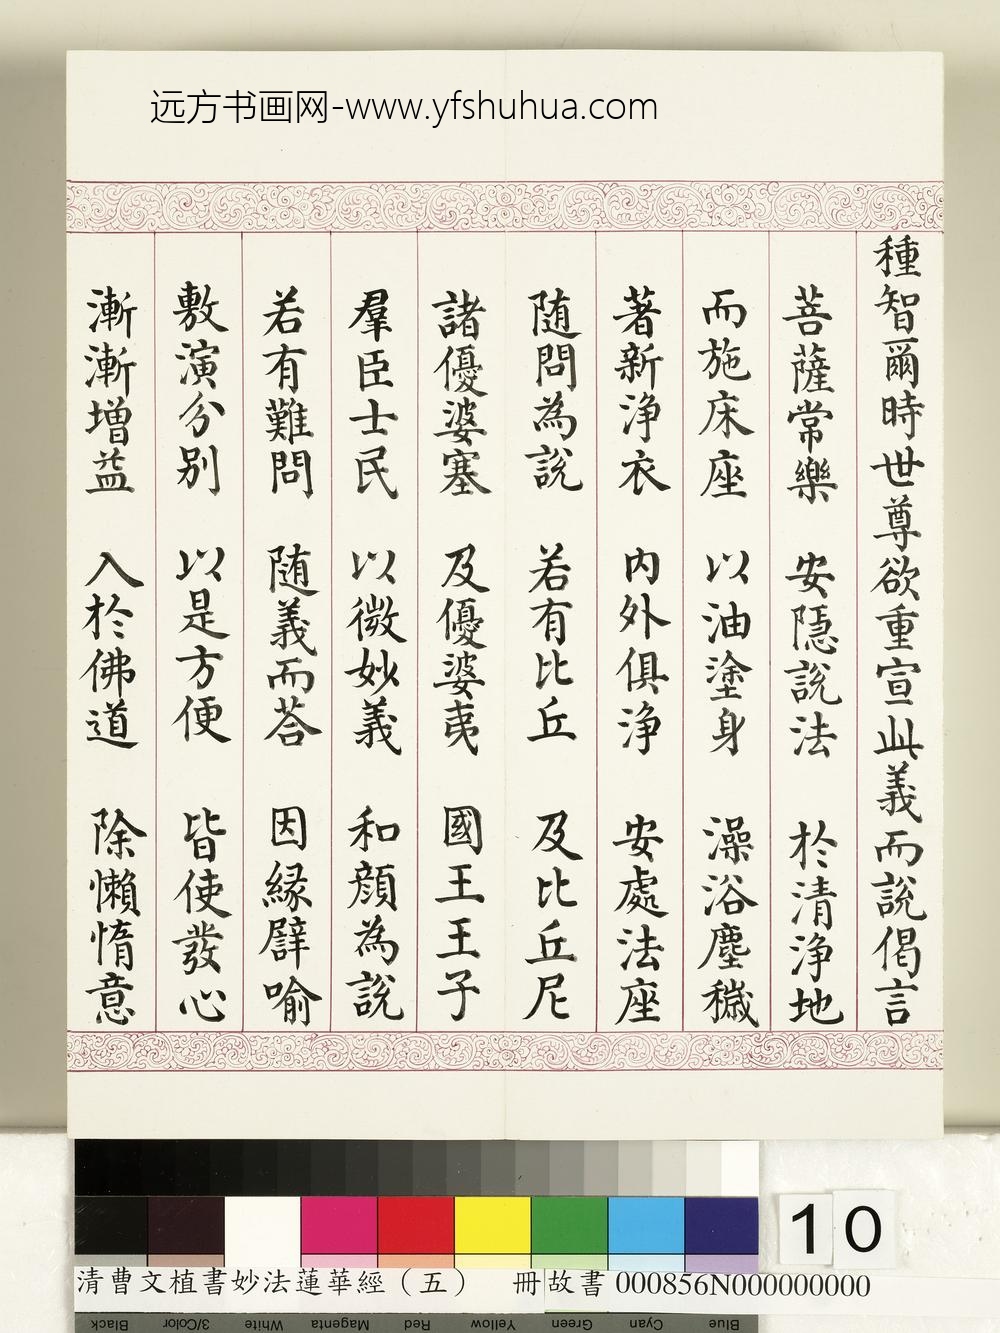 远方书画网-www.yfshuhua.com
種智爾時世尊欲重宣此義而說偈言
菩薩常樂　安隱說法　於清淨地
而施床座　以油塗身　澡浴塵穢
著新淨衣　內外俱淨　安處法座
隨問為說　若有比丘　及比丘尼
諸優婆塞　及優婆夷　國王王子
羣臣士民　以微妙義　和顏為說
若有難問　隨義而荅　因緣譬喻
敷演分別　以是方便　皆使發心
漸漸增益　入於佛道　除懶惰意
10
清曹文植書妙法蓮華經（五）　冊 故書 000856N000000000
Black 3/Color White Magenta Red Yellow Green Cyan Blue